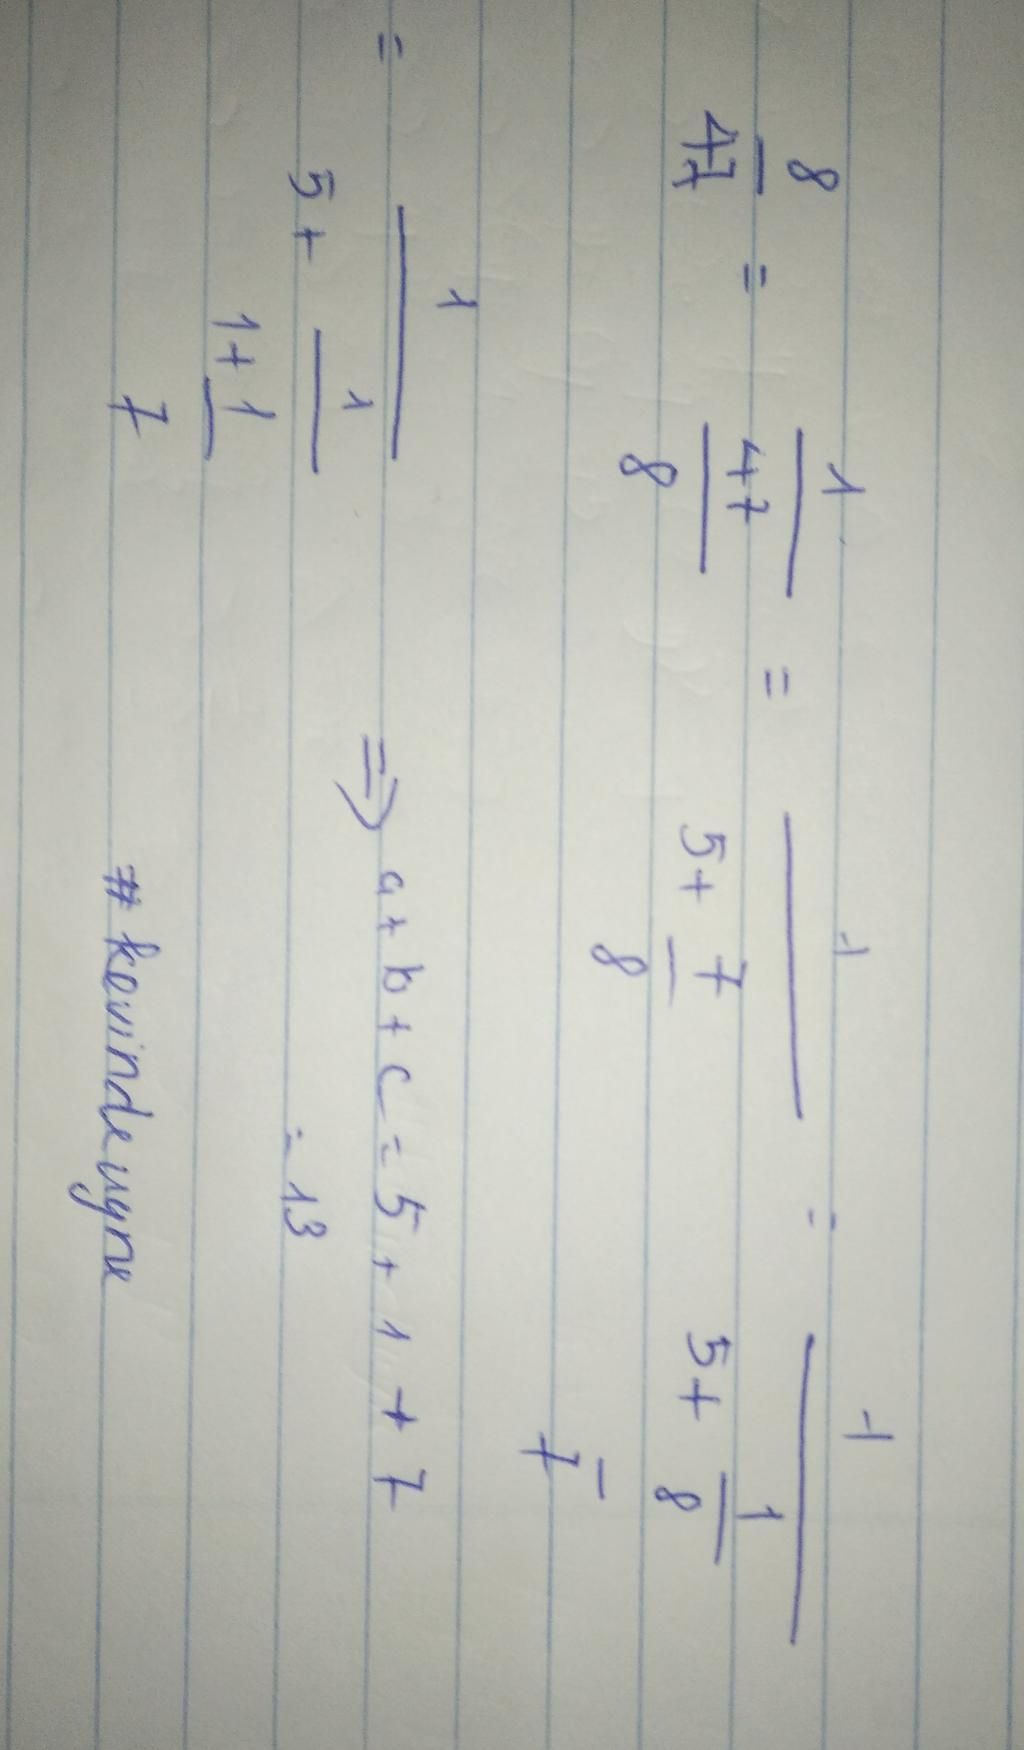 8/47 = 1/(47/8) = 1/(5+ 7/8) = 1/(5+ 1/(8/7))
= 1/(5+ 1/(1+ 1/7)) ⇒ a+b+c=5+1+7
=13
#kevindeuyne